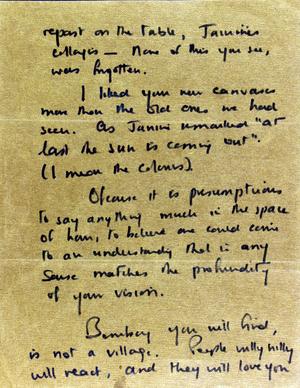 repast on the table, Jamini's
collages — None of this you see,
was forgotten.
I liked your new canvases
more than the old ones we had
seen. As Jamini remarked "at
last the sun is coming out".
(I mean the colours).
Ofcause it is presumptuous
to say anything much in the space
of hours, to believe one could come
to an understandg that in any
sense matches the profundity
of your vision.
Bombay you will find,
is not a village. People willy nilly
will react, and they will love you